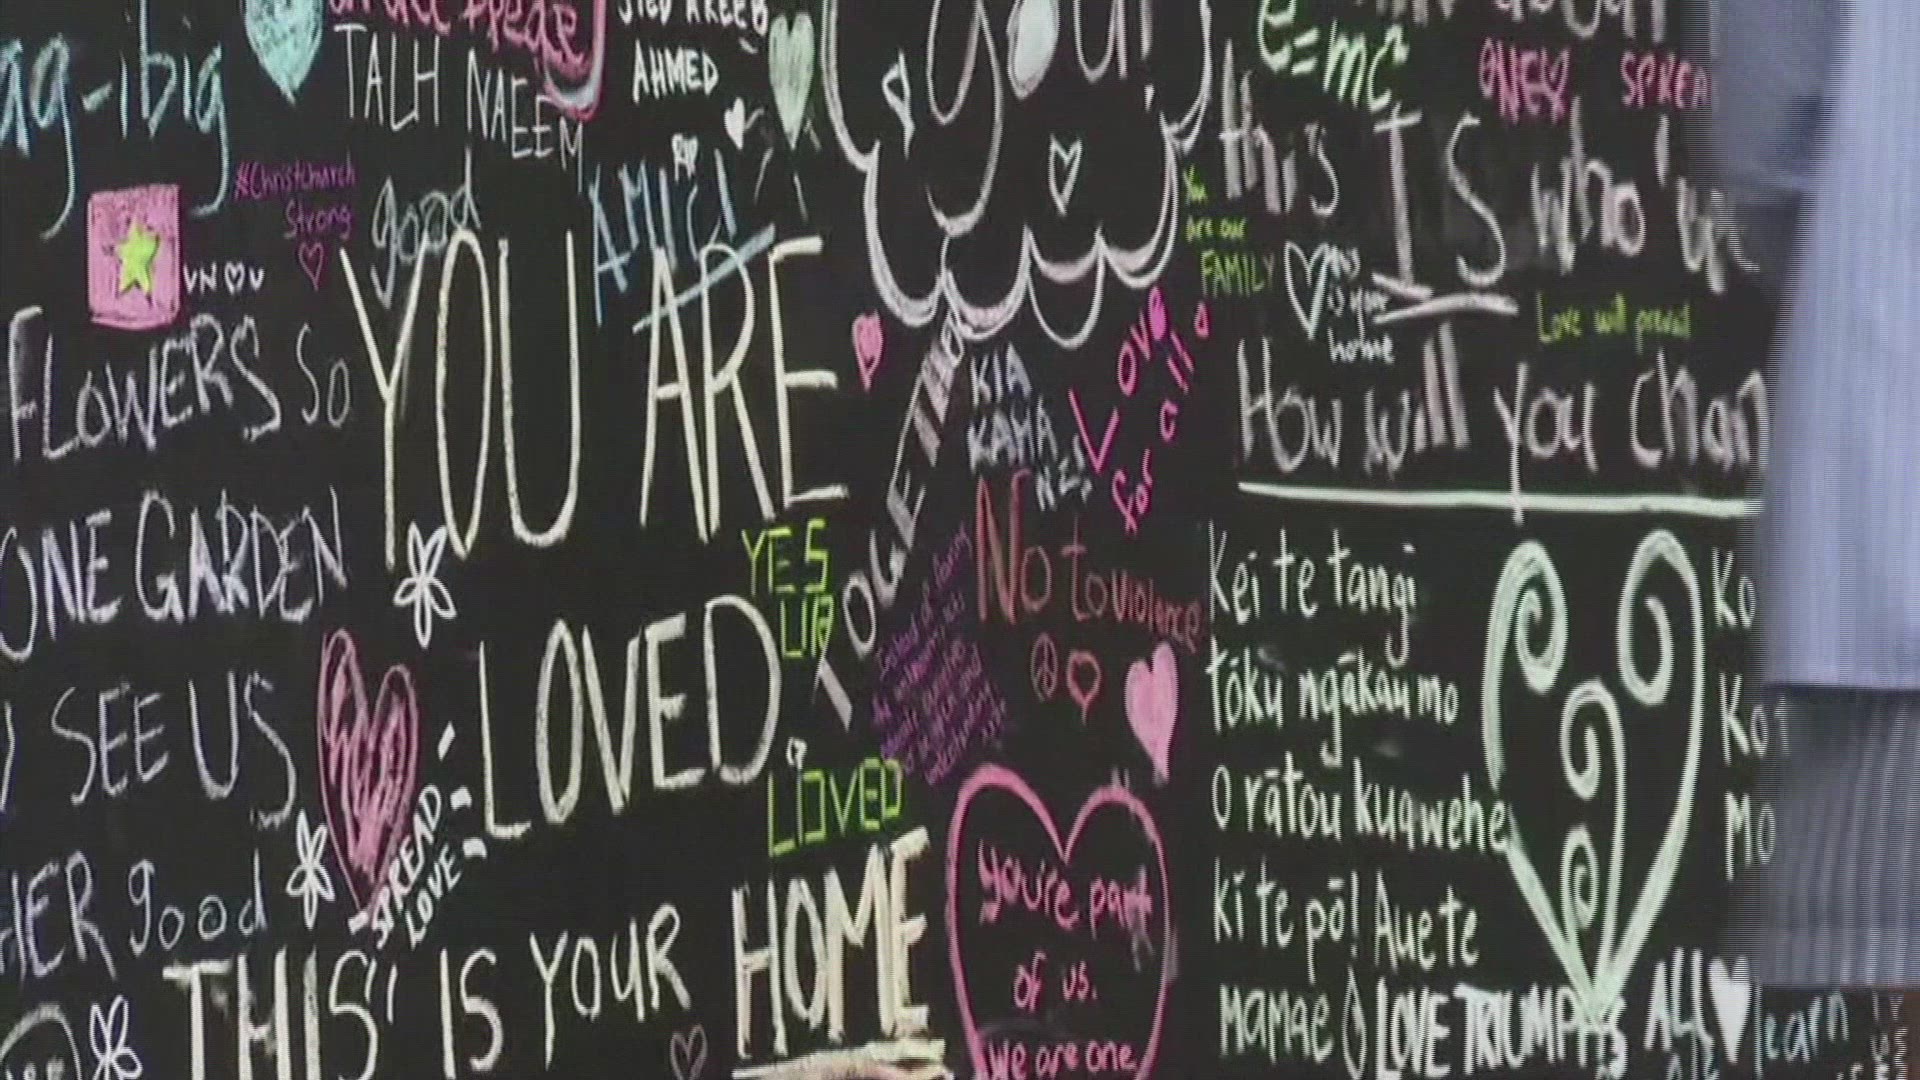 ag-ibig
TALH NAEEM
AHMED
you!
E=MC
this IS who
#Christchurch
Strong
good
RIP
AMICI
UN U
You
are our
FAMILY
is your
home
Love will prevail
FLOWERS SO
ONE GARDEN
SEE US
HER good
YOU ARE
LOVED.
THIS IS YOUR HOME
SPREAD
LOVE
YES
UR
LOVED
TOGETHER
KIA
KAHA
Love
for all
How will you chan
No to violence
you're part
of us.
We are one
Kei te tangi
tōku ngākau mo
O rātou kua wehe
ki te pō! Aue te
mamae
LOVE TRUMPS All
learn
Ko
Ko
Mo